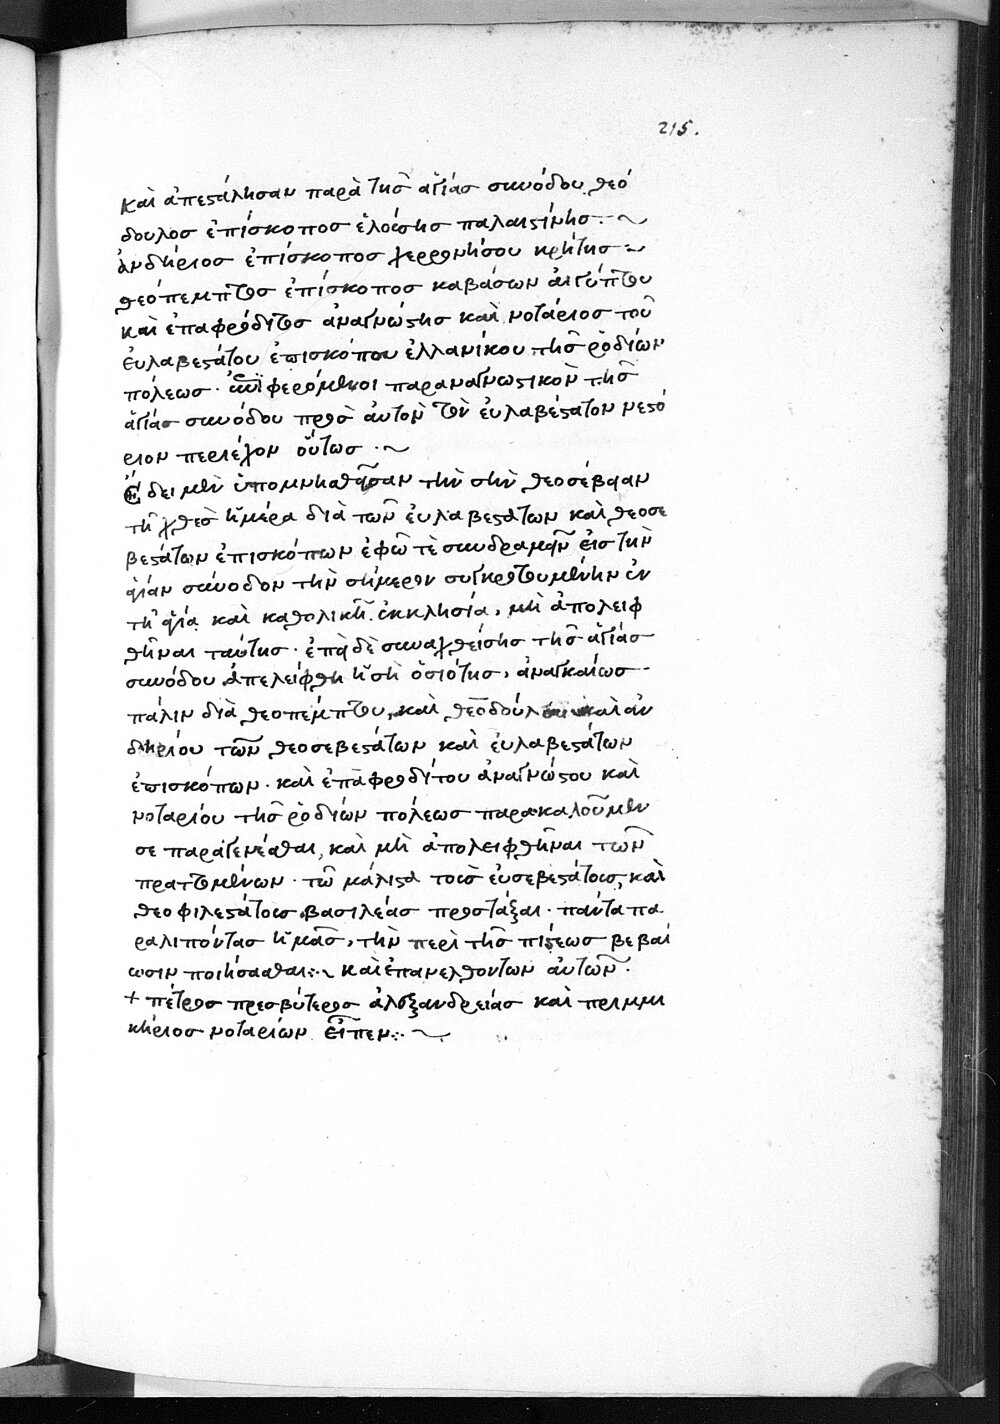 215.
καὶ ἀπεστάλησαν παρὰ τῆς ἁγίας συνόδου θεό
δουλος ἐπίσκοπος ἐλούσης παλαιστίνης
ἀνδήριος ἐπίσκοπος χερρονήσου κρήτης
θεόπεμπτος ἐπίσκοπος καβάσων αἰγύπτου
καὶ ἐπαφρόδιτος ἀναγνώστης καὶ νοτάριος τοῦ
εὐλαβεστάτου ἐπισκόπου ἑλλανίκου τῆς ῥοδίων
πόλεως · φερόμενοι παραναγνωστικὸν τῆς
ἁγίας συνόδου πρὸς αὐτὸν τὸν εὐλαβέστατον νεστό
ριον περιέχον οὕτως ·
Ἔδει μὲν ὑπομνησθεῖσαν τὴν σὴν θεοσέβειαν
τῇ χθὲς ἡμέρα διὰ τῶν εὐλαβεστάτων καὶ θεοσε
βεστάτων ἐπισκόπων ἐφῶ τὲ συνδραμεῖν εἰς τὴν
ἁγίαν σύνοδον τὴν σήμερον συγκροτουμένην ἐν
τῇ ἁγία καὶ καθολικῇ ἐκκλησία, μὴ ἀπολειφ
θῆναι ταύτης · ἐπεὶ δὲ συναχθείσης τῆς ἁγίας
συνόδου ἀπελείφθη ἡ σὴ ὁσιότης, ἀναγκαίως
πάλιν διὰ θεοπέμπτου, καὶ θεοδούλου καὶ ἀν
δηρίου τῶν θεοσεβεστάτων καὶ εὐλαβεστάτων
ἐπισκόπων · καὶ ἐπαφροδίτου ἀναγνώστου καὶ
νοταρίου τῆς ῥοδίων πόλεως παρακαλοῦμεν
σε παραγενέσθαι, καὶ μὴ ἀπολειφθῆναι τῶν
πραττομένων · τῶ μάλιστα τοὺς εὐσεβεστάτους, καὶ
θεοφιλεστάτους βασιλέας προστάξαι · πάντα πα
ραλιπόντας ἡμᾶς, τὴν περὶ τῆς πίστεως βεβαί
ωσιν ποιήσασθαι καὶ ἐπανελθόντων αὐτῶν ·
+ πέτρος πρεσβύτερος ἀλεξανδρείας καὶ πριμμι
κήριος νοταρίων εἶπεν